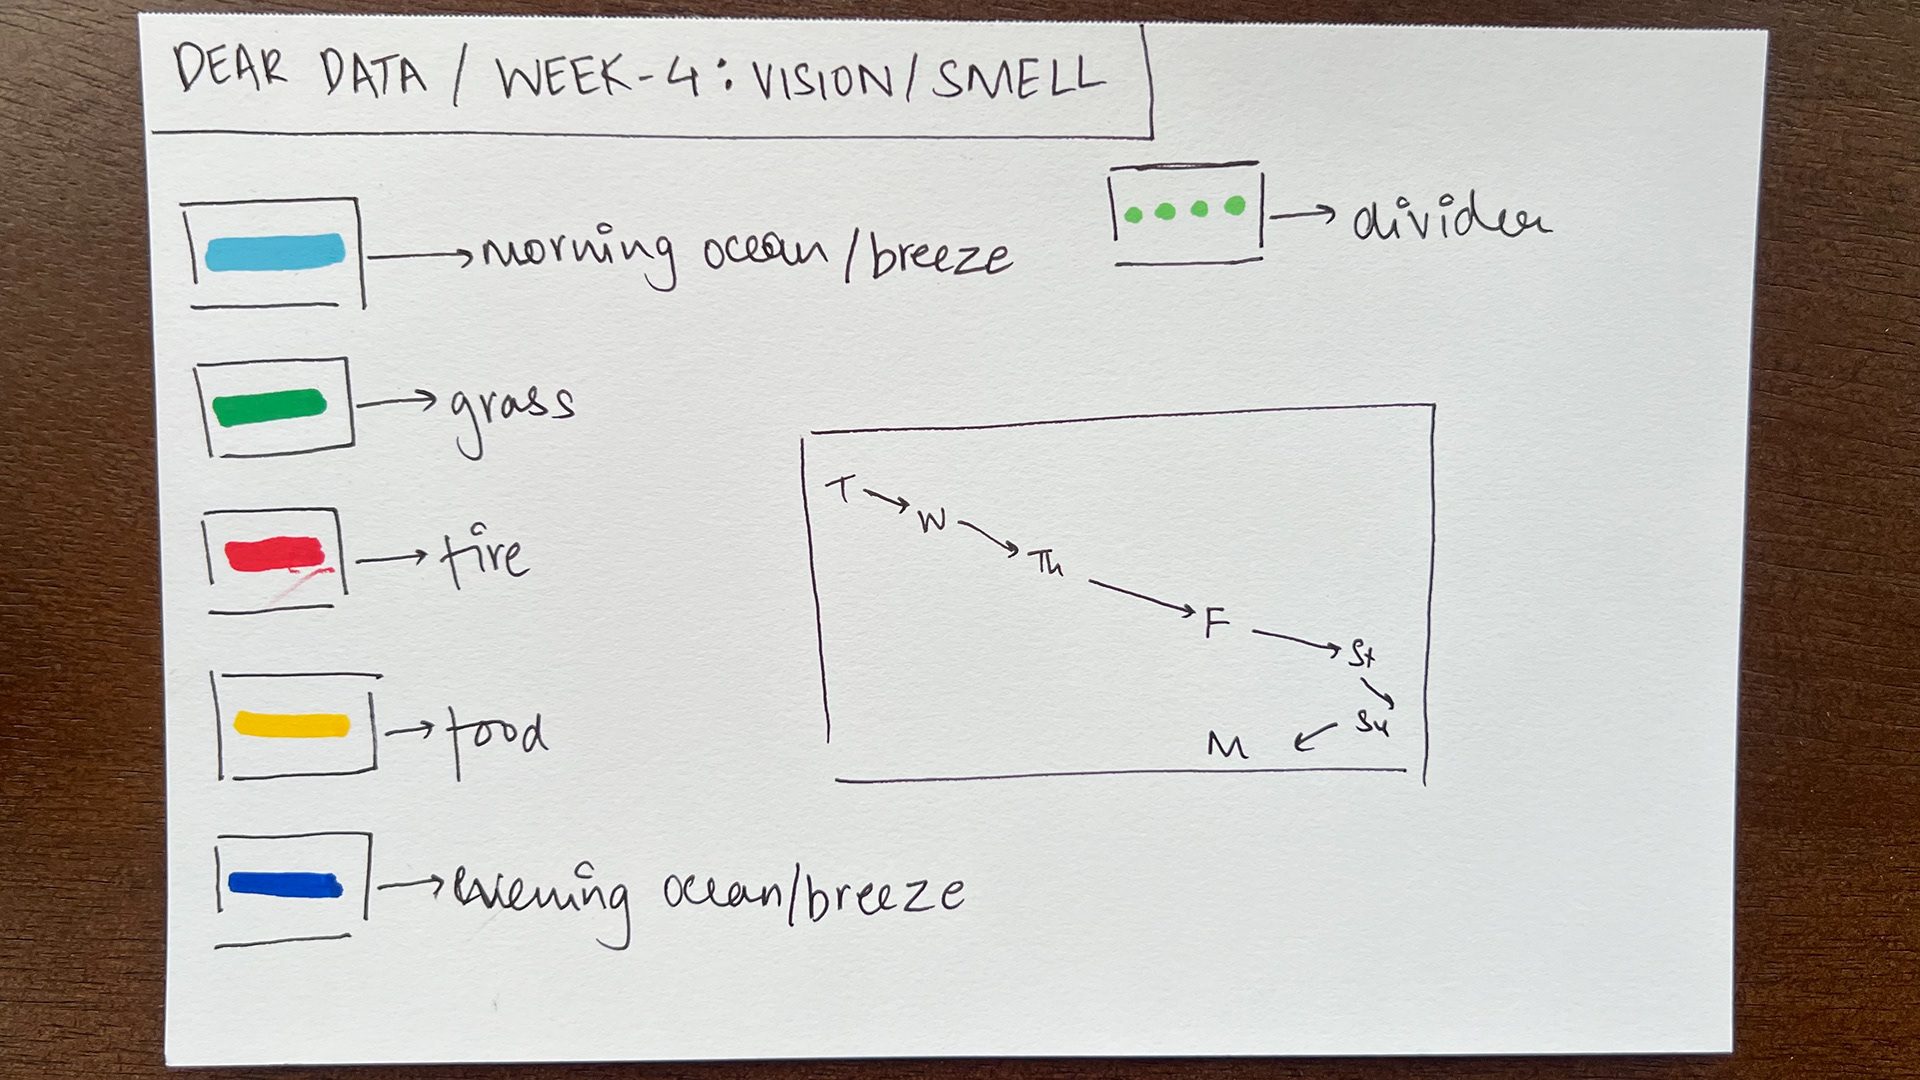 DEAR DATA / WEEK-4: VISION/SMELL
morning ocean/breeze
divider
grass
fire
food
evening ocean/breeze
T
W
Th
F
St
Su
M